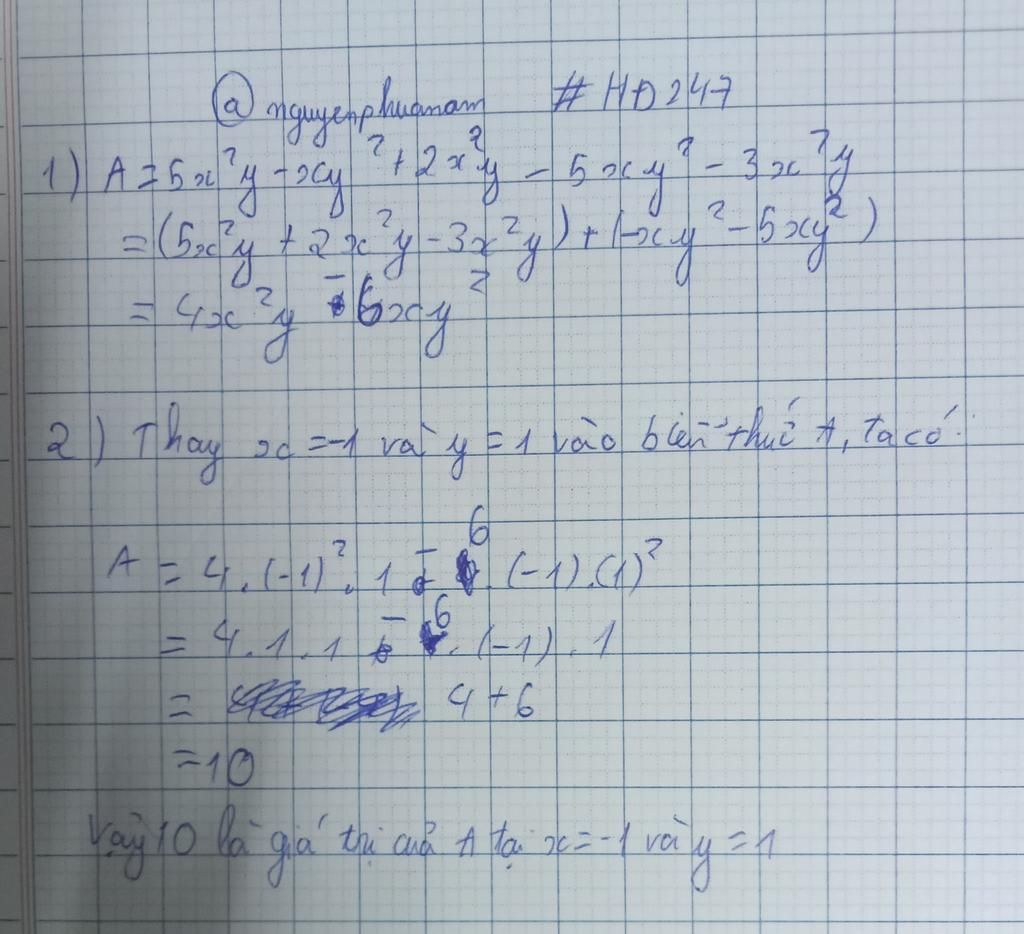 @nguyenphuanam #HĐ247
1) A = 5x²y - xy² + 2x²y - 5xy² - 3x²y
= (5x²y + 2x²y - 3x²y) + (-xy² - 5xy²)
= 4x²y - 6xy²
2) Thay x = -1 và y = 1 vào biểu thức A, ta có:
A = 4.(-1)².1 - 6.(-1).(1)²
= 4.1.1 - 6.(-1).1
= 4 + 6
= 10
Vậy 10 là giá trị của A tại x = -1 và y = 1